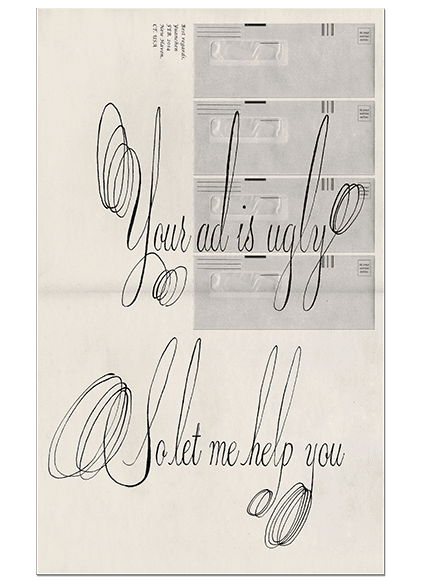 Best regards,
Yuanchen
FEB. 2014
New Haven,
CT. USA
Your ad is ugly
So let me help you